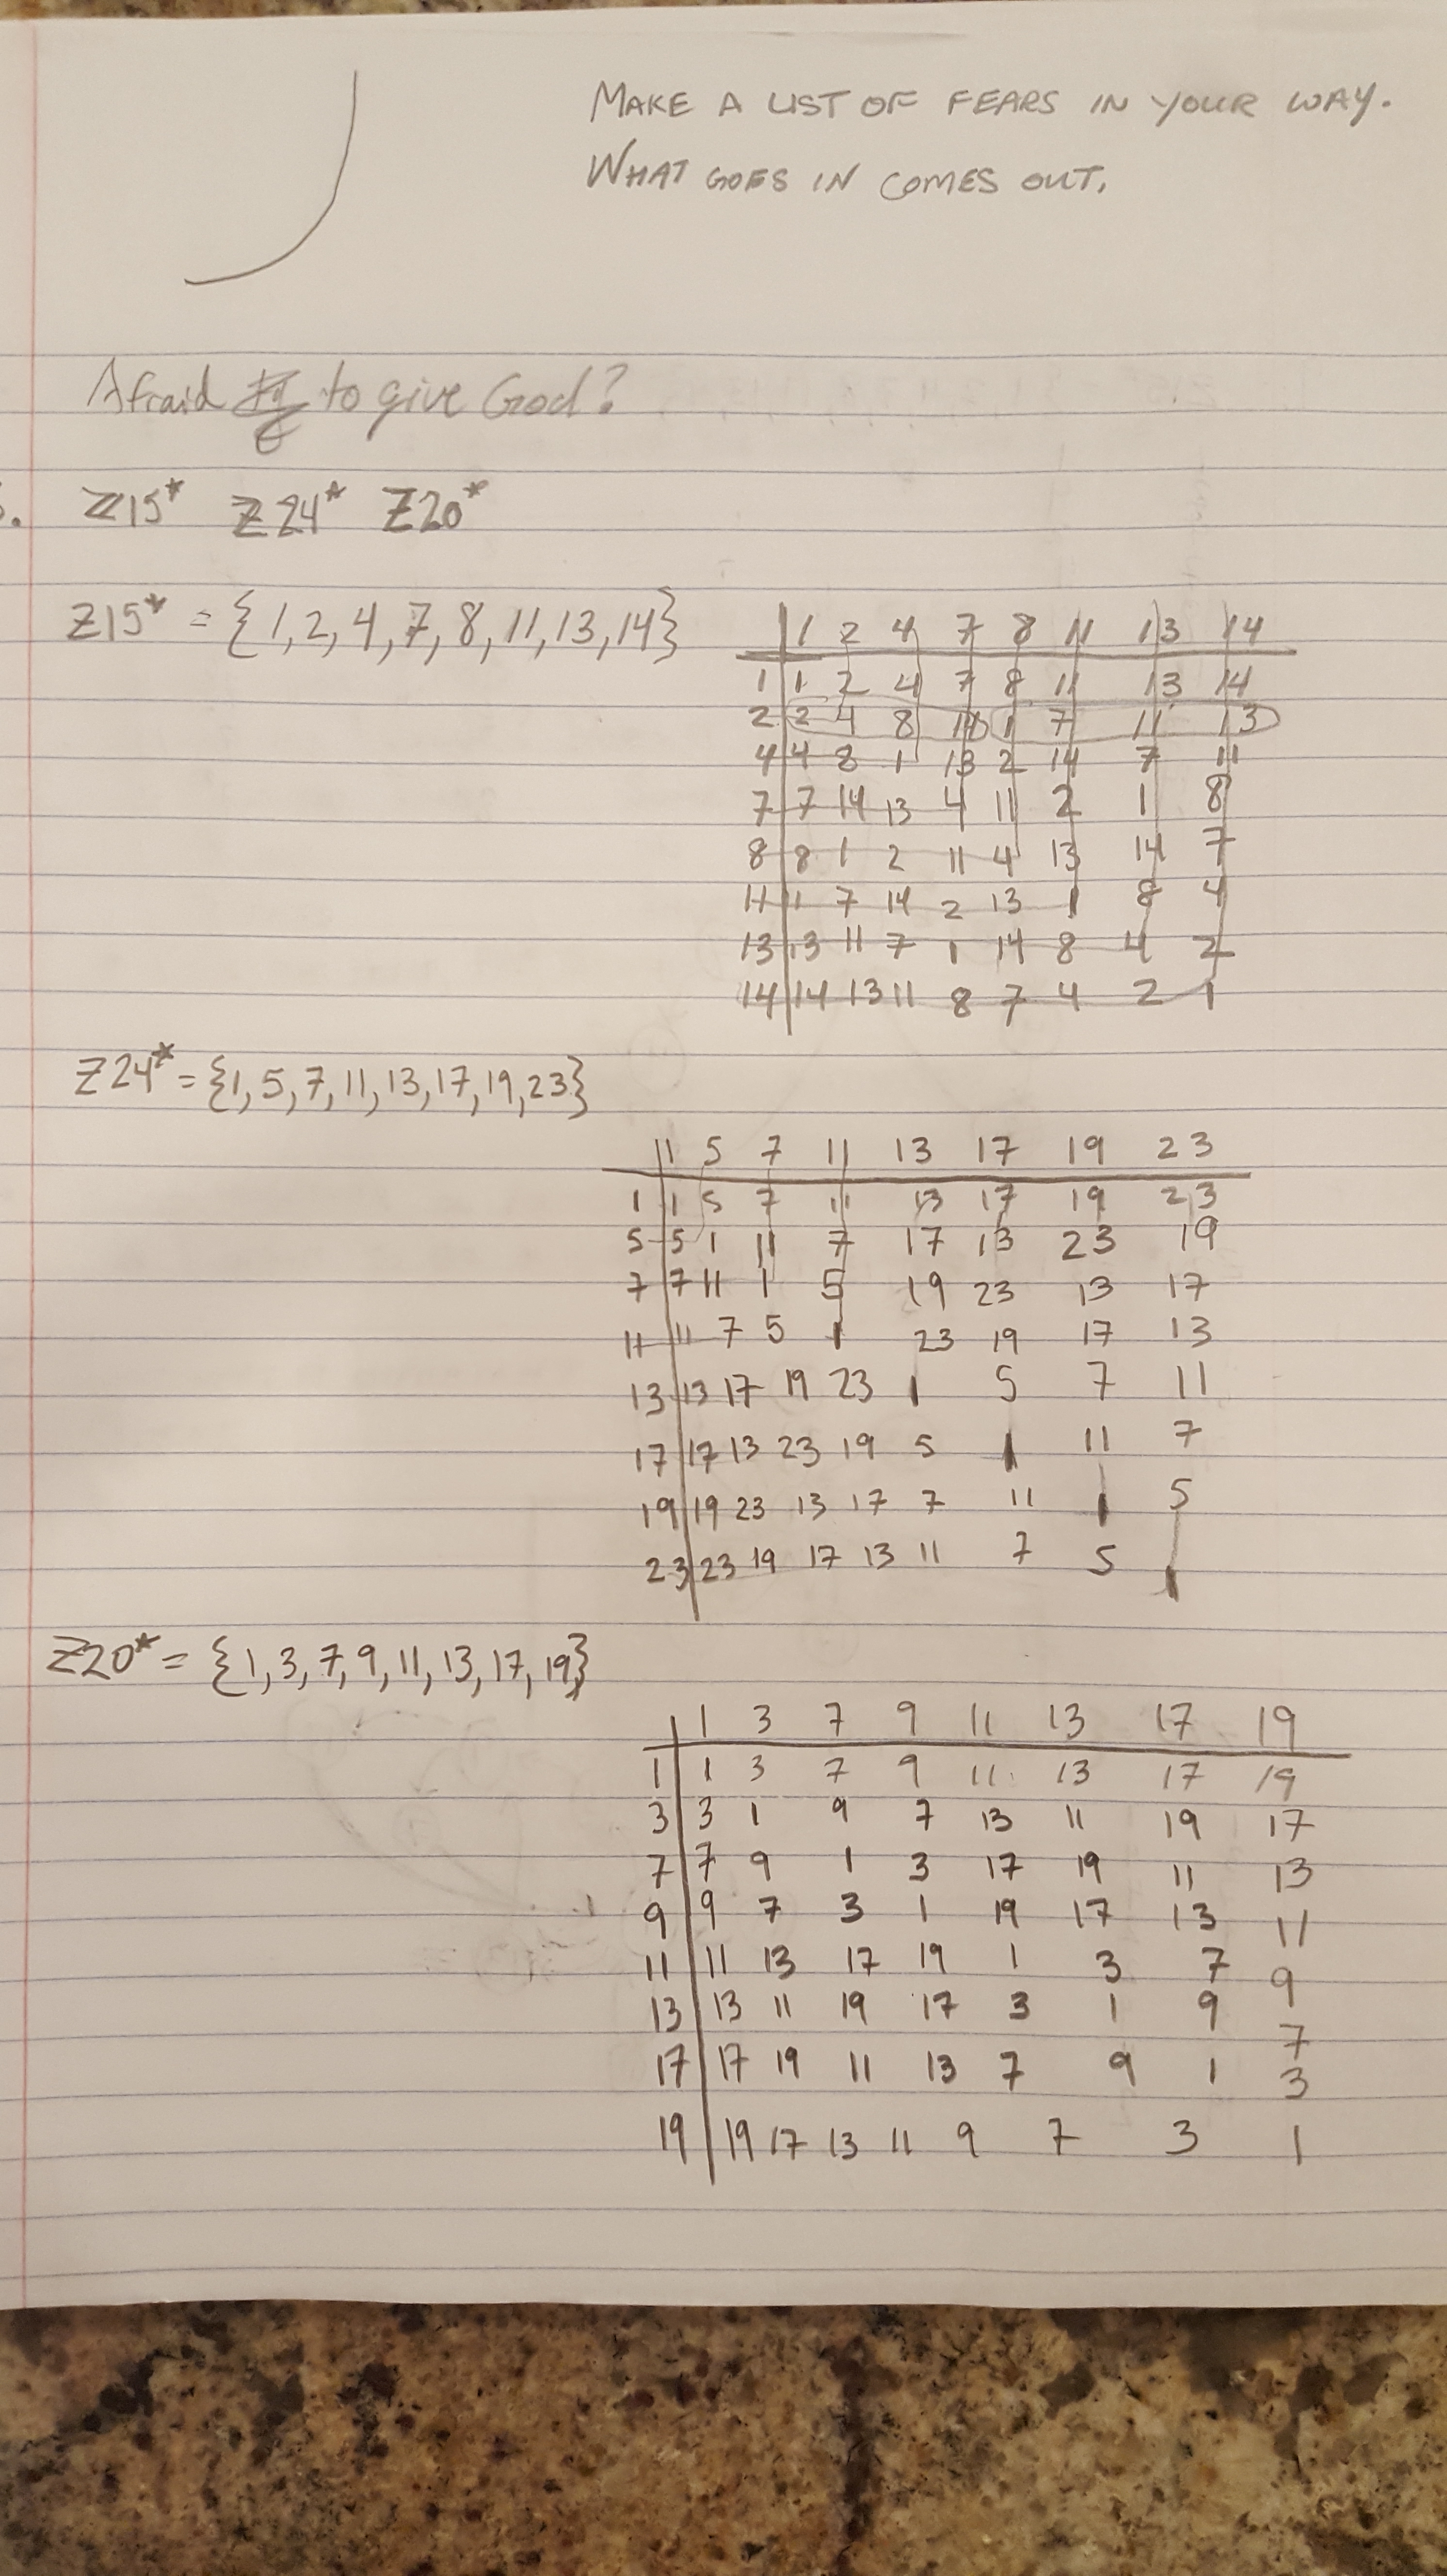 MAKE A LIST OF FEARS IN YOUR WAY.
WHAT GOES IN COMES OUT.
Afraid to give God?
Z15* Z24* Z20*
Z15* = {1,2,4,7,8,11,13,14}
1 2 4 7 8 11 13 14
1 1 2 4 7 8 11 13 14
2 2 4 8 14 1 7 11 13
4 4 8 1 13 2 14 7 11
7 7 14 13 4 11 2 1 8
8 8 1 2 11 4 13 14 7
11 11 7 14 2 13 1 8 4
13 13 11 7 1 14 8 4 2
14 14 13 11 8 7 4 2 1
Z24* = {1,5,7,11,13,17,19,23}
1 5 7 11 13 17 19 23
1 1 5 7 11 13 17 19 23
5 5 1 11 7 17 13 23 19
7 7 11 1 5 19 23 13 17
11 11 7 5 1 23 19 17 13
13 13 17 19 23 1 5 7 11
17 17 13 23 19 5 1 11 7
19 19 23 13 17 7 11 1 5
23 23 19 17 13 11 7 5 1
Z20* = {1,3,7,9,11,13,17,19}
1 3 7 9 11 13 17 19
1 1 3 7 9 11 13 17 19
3 3 1 9 7 13 11 19 17
7 7 9 1 3 17 19 11 13
9 9 7 3 1 19 17 13 11
11 11 13 17 19 1 3 7 9
13 13 11 19 17 3 1 9 7
17 17 19 11 13 7 9 1 3
19 19 17 13 11 9 7 3 1